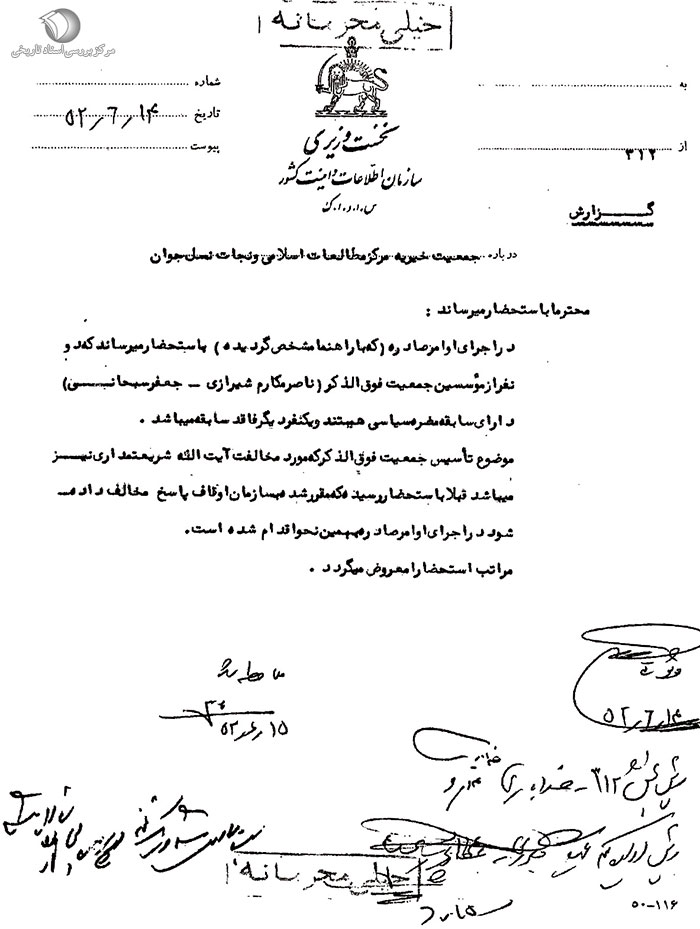 خیلی محرمانه
مرکز بررسی اسناد تاریخی
به
شماره
تاریخ ۵۲٫۶٫۱۴
از ۳۱۲
پیوست
نخست وزیری
سازمان اطلاعات و امنیت کشور
س.ا.و.ا.ک
گزارش
درباره جمعیت خیریه مرکز مطالعات اسلامی و نجات نسل جوان
محترما باستحضار میرساند :
در اجرای اوامر صادره (که با راهنما مشخص گردیده ) باستحضار میرساند که دو
نفر از مؤسسین جمعیت فوق الذکر (ناصر مکارم شیرازی – جعفر سبحانی)
دارای سابقه مضره سیاسی هستند و یکنفر دیگر فاقد سابقه میباشد .
موضوع تأسیس جمعیت فوق الذکر که مورد مخالفت آیت الله شریعتمداری نیز
میباشد قبلا باستحضار رسیده که مقرر شد بسازمان اوقاف پاسخ مخالف داده
شود در اجرای اوامر صادره بهمین نحو اقدام شده است.
مراتب استحضارا معروض میگردد .
ملاحظه شد
۵۲٫۶٫۱۴
۱۵٫۶٫۵۲
۳۱۲
خیلی محرمانه
۵۰-۱۱۶